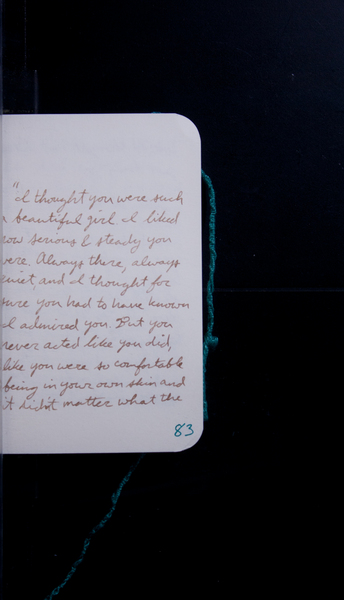 "I thought you were such
a beautiful girl. I liked
how serious & steady you
were. Always there, always
quiet, and I thought for
sure you had to have known
I admired you. But you
never acted like you did,
like you were so comfortable
being in your own skin and
it didn't matter what the
83